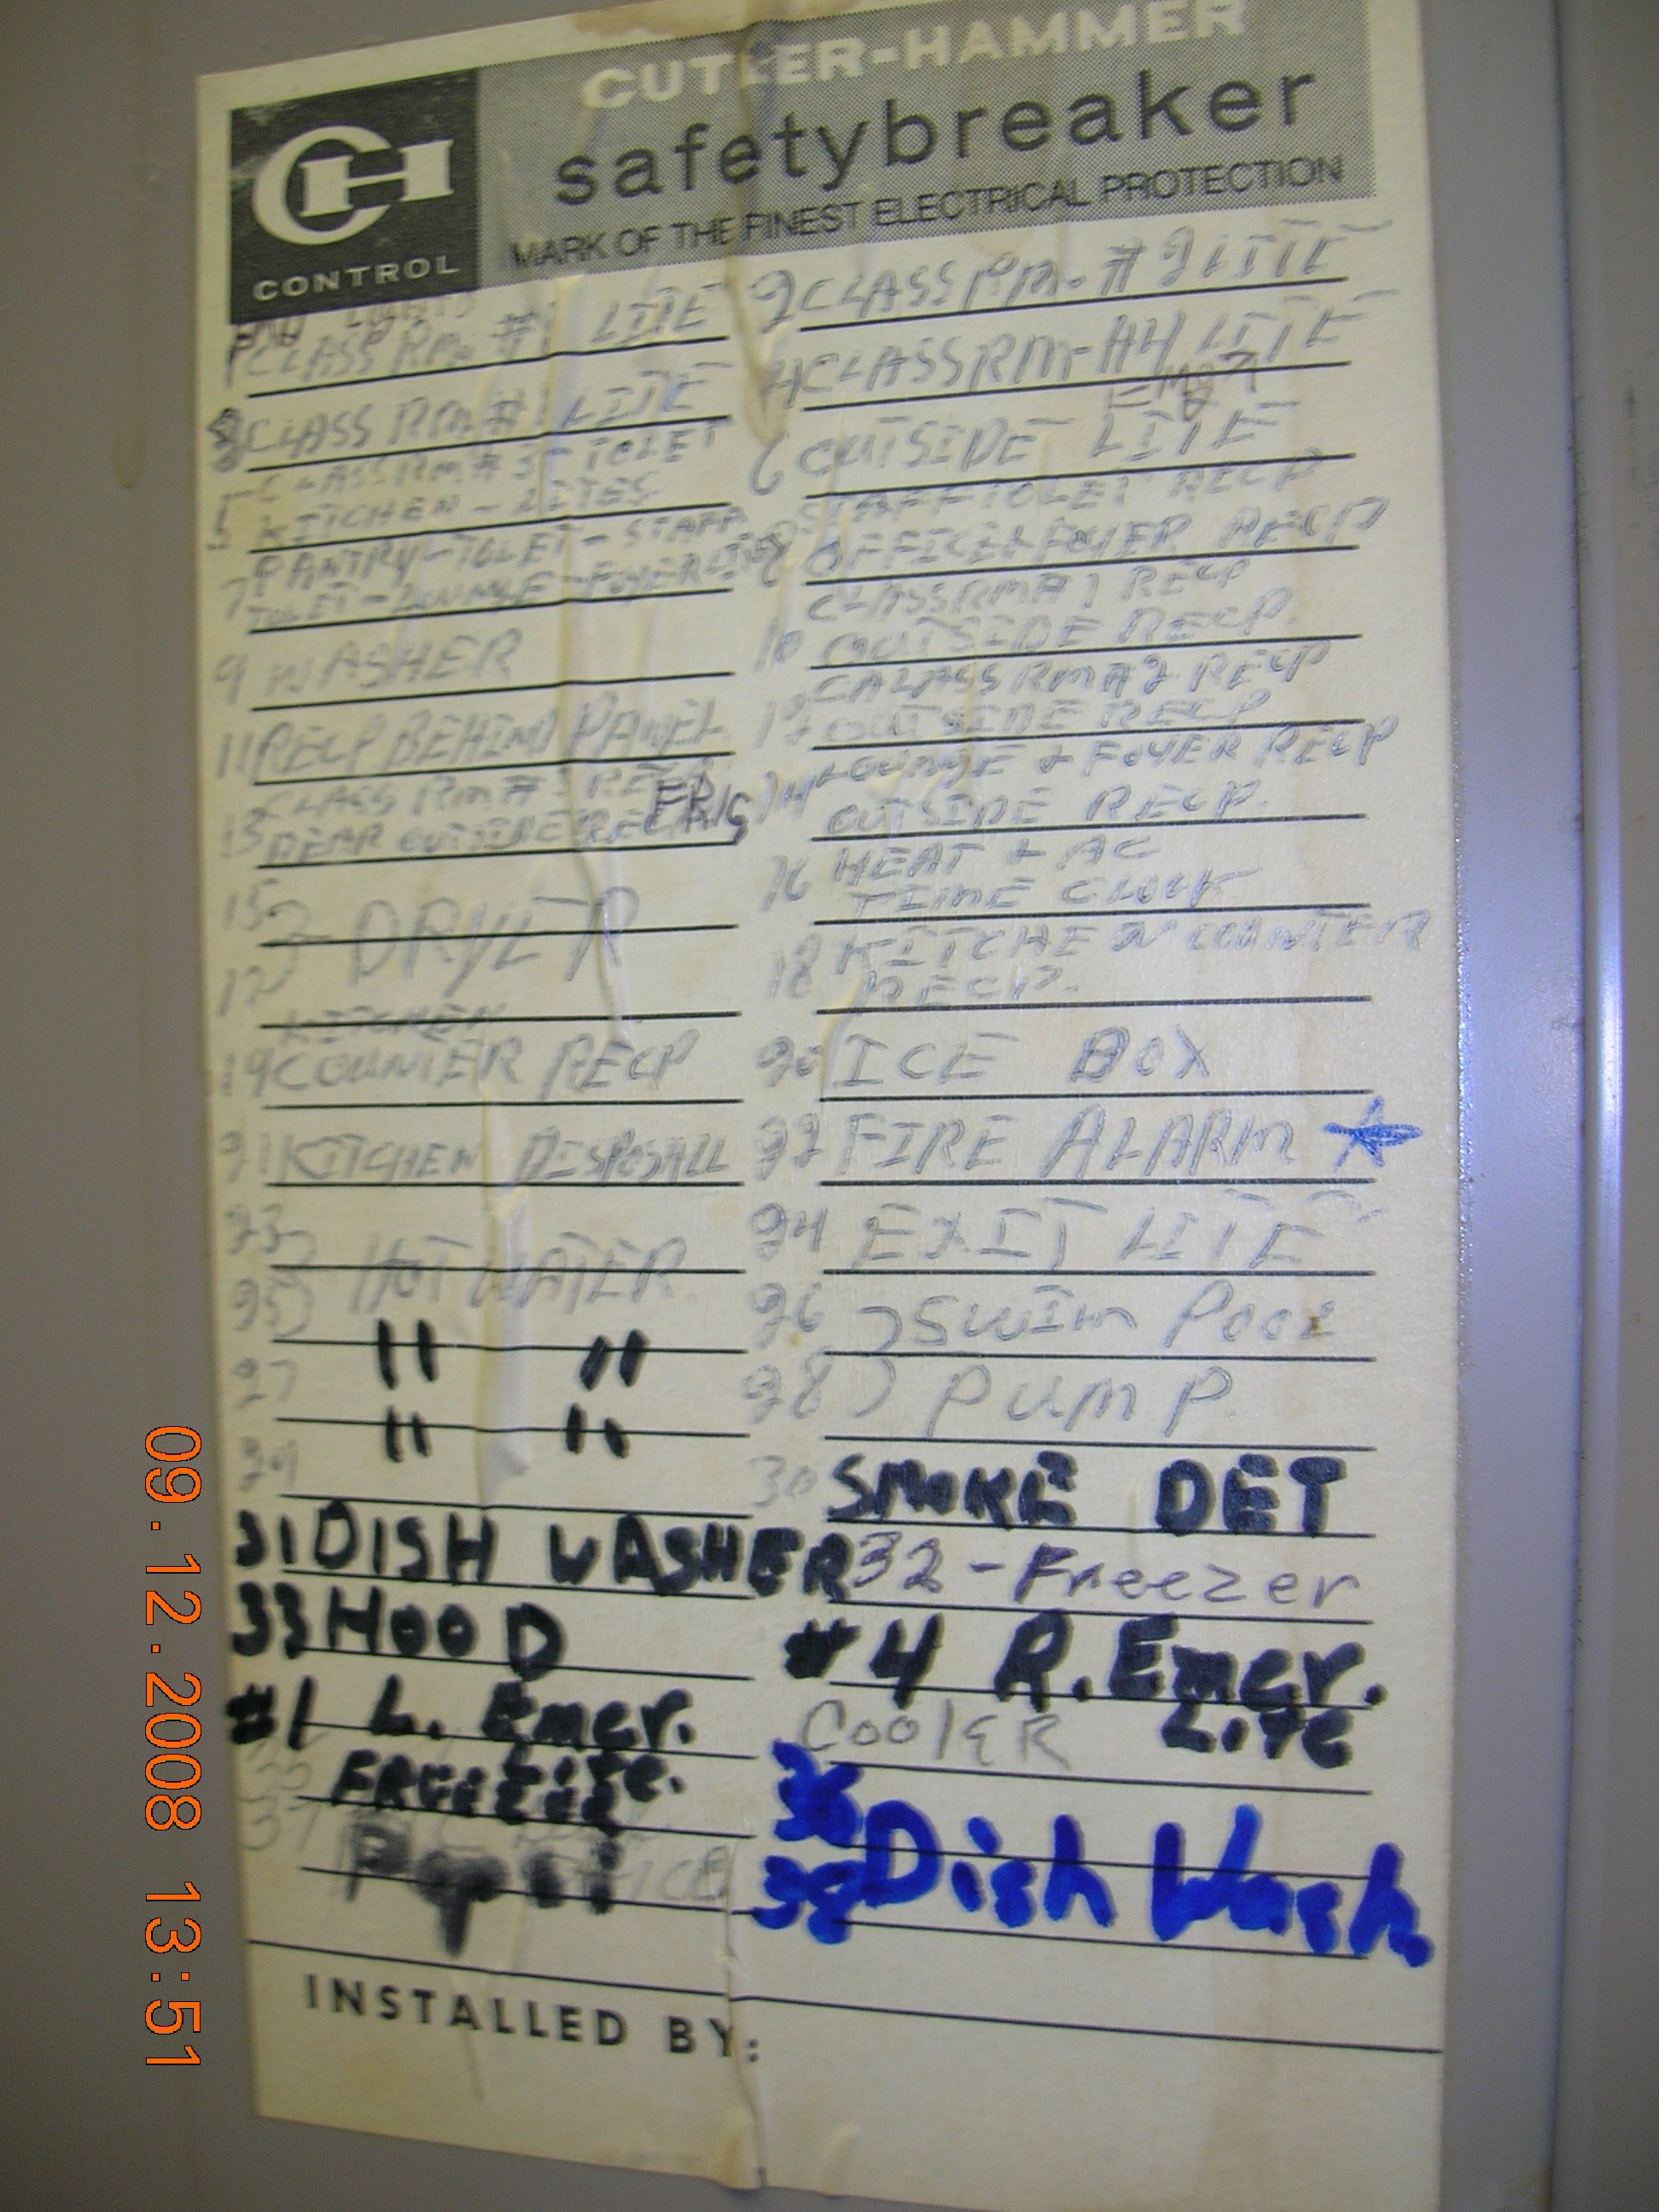 CUTLER-HAMMER
safetybreaker
MARK OF THE FINEST ELECTRICAL PROTECTION
CH
CONTROL
LIGHTS
1 CLASS RM #1 LITE
2 CLASS RM. # 2 LITE
3 CLASS RM #1 LITE
4 CLASS RM #4 LITE
CLASS RM # 3 - TOLET
5 KITCHEN - LITES
6 OUTSIDE LITE
PANTRY - TOLET - STAFF
7 TOLET - LOUNGE - FOYER LITES
STAFF TOLET RECP
8 OFFICE & FOYER RECP
9 WASHER
CLASS RM # 1 RECP
10 OUTSIDE RECP.
11 RECP BEHIND PANEL
CALASS RM # 2 RECP
12 OUTSIDE RECP
CLASS RM # 3 RECP
13 REAR OUTSIDE RECP FRIG
14 LOUNGE & FOYER RECP
OUTSIDE RECP.
15
17 DRYER
16 HEAT & AC
TIME CLOCK
18 KITCHEN COUNTER
RECP.
KITCHEN
19 COUNTER RECP
20 ICE BOX
21 KITCHEN DISPOSALL
22 FIRE ALARM
23
25 HOT WATER
24 EXIT LITE
26 SWIM POOL
27 " "
28 PUMP
29 " "
30 SMOKE DET
31 DISH WASHER
32 - Freezer
33 HOOD
#4 R. Emer.
Lite
#1 L. Emer.
Lite.
COOLER
35 FREEZER
37
36
38 Dish Wash.
INSTALLED BY:
09.12.2008 13:51